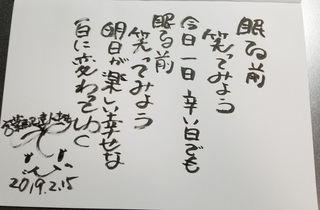 眠る前
笑ってみよう
今日一日辛い日でも
眠る前
笑ってみよう
明日が楽しい幸せな
百に変わってゆく
2019.2.15